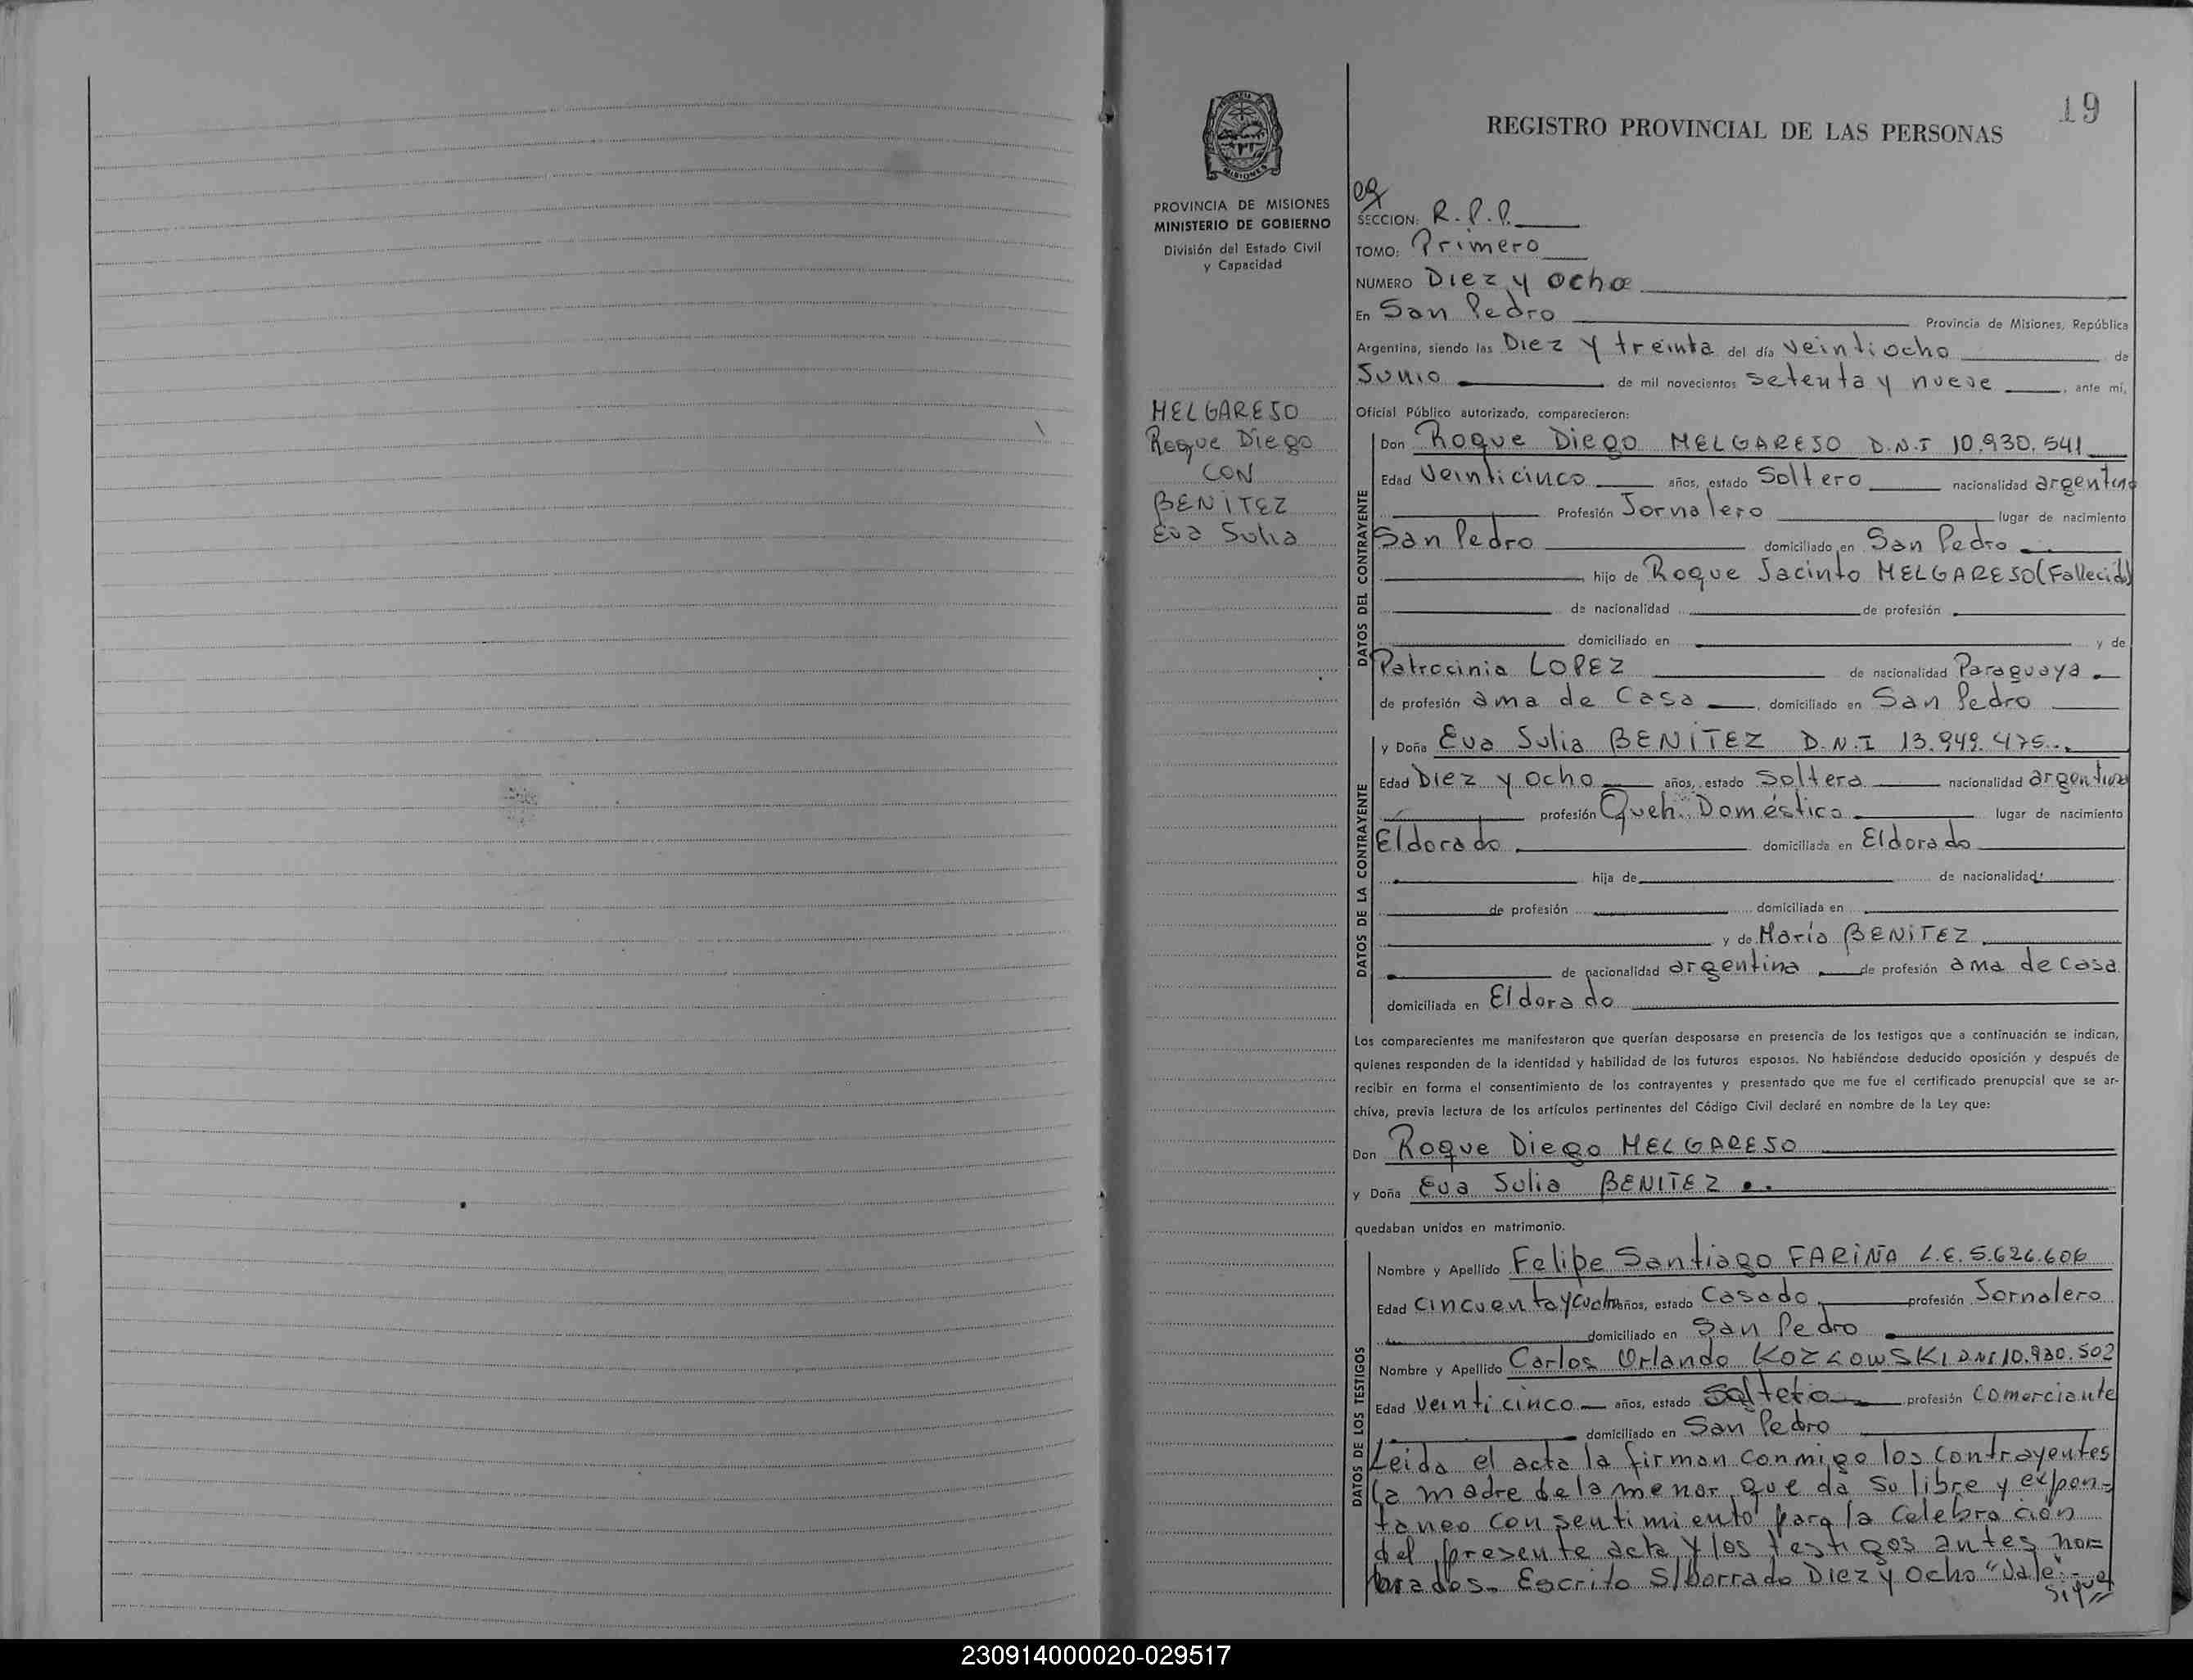 19
REGISTRO PROVINCIAL DE LAS PERSONAS
PROVINCIA DE MISIONES
MINISTERIO DE GOBIERNO
División del Estado Civil
y Capacidad
MELGAREJO
Roque Diego
CON
BENITEZ
Eva Julia
SECCION: R.P.P.
TOMO: Primero
NUMERO Diez y ocho
En San Pedro Provincia de Misiones, República
Argentina, siendo las Diez y treinta del día veintiocho de
Junio de mil novecientos setenta y nueve, ante mí,
Oficial Público autorizado, comparecieron:
DATOS DEL CONTRAYENTE
Don Roque Diego MELGAREJO D.N.I 10.930.541
Edad Veinticinco años, estado Soltero nacionalidad argentino
Profesión Jornalero lugar de nacimiento
San Pedro domiciliado en San Pedro
, hijo de Roque Jacinto MELGAREJO (Fallecido)
de nacionalidad de profesión
domiciliado en y de
Patrocinia LOPEZ de nacionalidad Paraguaya
de profesión ama de casa, domiciliado en San Pedro
DATOS DE LA CONTRAYENTE
y Doña Eva Julia BENITEZ D.N.I 13.949.475
Edad Diez y ocho años, estado Soltera nacionalidad argentina
profesión Queh. Doméstico lugar de nacimiento
Eldorado domiciliada en Eldorado
hija de de nacionalidad
de profesión domiciliada en
y de María BENITEZ
de nacionalidad argentina de profesión ama de casa
domiciliada en Eldorado
Los comparecientes me manifestaron que querían desposarse en presencia de los testigos que a continuación se indican,
quienes responden de la identidad y habilidad de los futuros esposos. No habiéndose deducido oposición y después de
recibir en forma el consentimiento de los contrayentes y presentado que me fue el certificado prenupcial que se ar-
chiva, previa lectura de los artículos pertinentes del Código Civil declaré en nombre de la Ley que:
Don Roque Diego MELGAREJO
y Doña Eva Julia BENITEZ
quedaban unidos en matrimonio.
DATOS DE LOS TESTIGOS
Nombre y Apellido Felipe Santiago FARIÑA L.E. 5.626.606
Edad cincuenta y cuatro años, estado Casado profesión Jornalero
domiciliado en San Pedro
Nombre y Apellido Carlos Orlando KOZLOWSKI DNI 10.930.502
Edad Veinticinco años, estado Soltero profesión Comerciante
domiciliado en San Pedro
Leida el acta la firman conmigo los contrayentes
la madre de la menor que dá su libre y expon-
taneo consentimiento para la celebración
del presente acta y los testigos antes nom-
brados. Escrito S/borrado Diez y Ocho "Vale".-
sigue
230914000020-029517